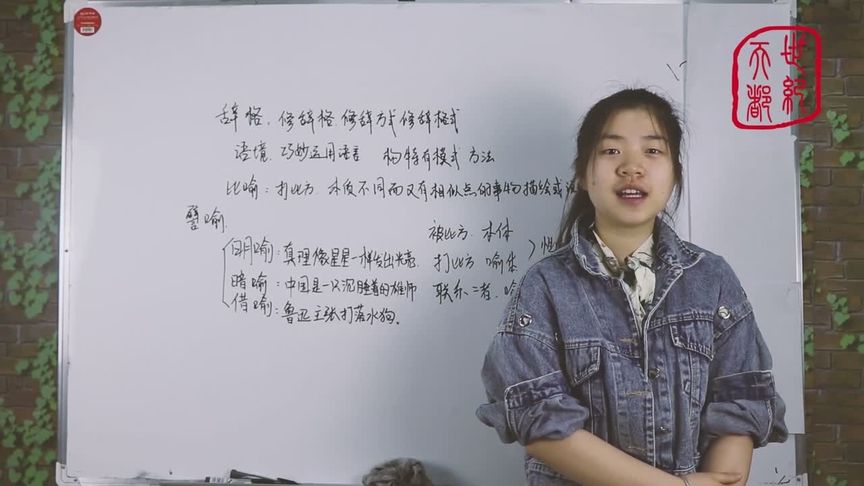 世纪
天都
辞格、修辞格、修辞方式修辞格式
语境、巧妙运用语言 构特有模式 方法
比喻：打比方、本质不同而又有相似点的事物描绘或
譬喻、
被比方、本体
明喻：真理像星星一样发出光亮 打比方 喻体
暗喻：中国是一只沉睡着的雄师 联系二者、喻
借喻：鲁迅主张打落水狗。